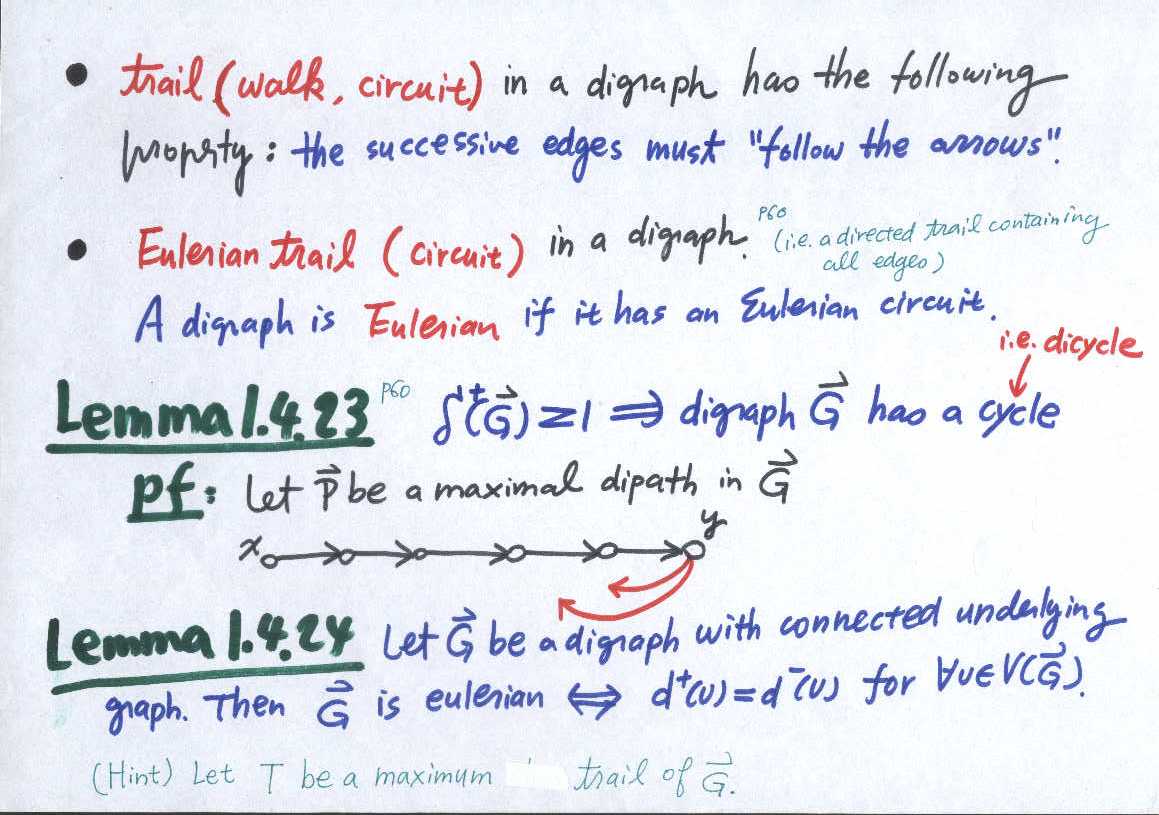 • trail (walk, circuit) in a digraph has the following
property: the successive edges must "follow the arrows".
• Eulerian trail (circuit) in a digraph. P60 (i.e. a directed trail containing
all edges)
A digraph is Eulerian if it has an Eulerian circuit.
i.e. dicycle
Lemma 1.4.23 P60 δ⁺(G⃗) ≥ 1 ⇒ digraph G⃗ has a cycle
pf: Let P⃗ be a maximal dipath in G⃗
x y
Lemma 1.4.24 Let G⃗ be a digraph with connected underlying
graph. Then G⃗ is eulerian ⇔ d⁺(v) = d⁻(v) for ∀v∈V(G⃗).
(Hint) Let T be a maximum trail of G⃗.